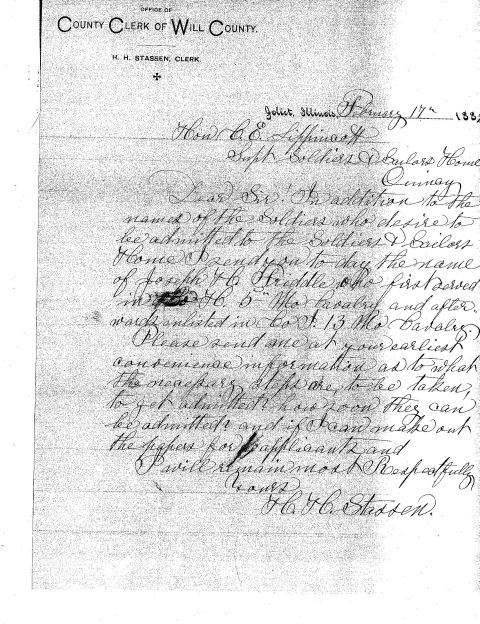 OFFICE OF
COUNTY CLERK OF WILL COUNTY.
H. H. STASSEN, CLERK.
Joliet, Illinois, February 17th 188
Hon C. E. Lippincott
Supt Soldiers & Sailors Home
Quincy
Dear Sir! In addition to the
names of the Soldiers who desire to
be admitted to the Soldiers & Sailors
Home I send you to day the name
of Joseph H. who first served
in H. 5th Mo Cavalry and after-
wards enlisted in Co I. 13 Mo Cavalry
Please send me at your earliest
convenience information as to what
the necessary steps are, to be taken,
to get admitted? how soon they can
be admitted? and if I can make out
the papers for applicants and
I will remain most Respectfully
Yours
H. H. Stassen.